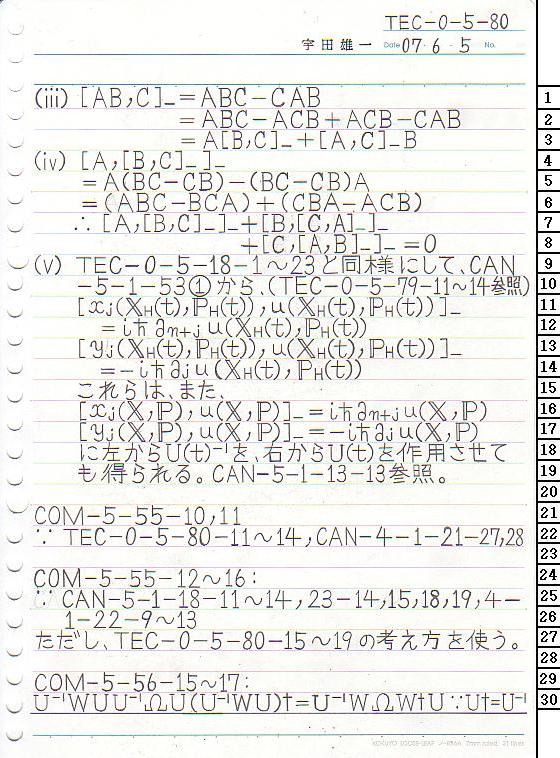 TEC-0-5-80
宇田雄一 Date 07・6・5 No.
(iii) [AB,C]_=ABC-CAB
=ABC-ACB+ACB-CAB
=A[B,C]_+[A,C]_B
(iv) [A,[B,C]_]_
=A(BC-CB)-(BC-CB)A
=(ABC-BCA)+(CBA-ACB)
∴[A,[B,C]_]_+[B,[C,A]_]_
+[C,[A,B]_]_=0
(v) TEC-0-5-18-1~23と同様にして、CAN
-5-1-53①から、(TEC-0-5-79-11~14参照)
[xj(𝕏H(t),ℙH(t)),u(𝕏H(t),ℙH(t))]_
=iħ∂n+j u(𝕏H(t),ℙH(t))
[yj(𝕏H(t),ℙH(t)),u(𝕏H(t),ℙH(t))]_
=-iħ∂j u(𝕏H(t),ℙH(t))
これらは、また、
[xj(𝕏,ℙ),u(𝕏,ℙ)]_=iħ∂n+j u(𝕏,ℙ)
[yj(𝕏,ℙ),u(𝕏,ℙ)]_=-iħ∂j u(𝕏,ℙ)
に左からU(t)⁻¹を、右からU(t)を作用させて
も得られる。CAN-5-1-13-13参照。
COM-5-55-10,11
∵ TEC-0-5-80-11~14,CAN-4-1-21-27,28
COM-5-55-12~16:
∵ CAN-5-1-18-11~14,23-14,15,18,19,4-
1-22-9~13
ただし、TEC-0-5-80-15~19の考え方を使う。
COM-5-56-15~17:
U⁻¹WUU⁻¹ΩU(U⁻¹WU)†=U⁻¹WΩW†U ∵U†=U⁻¹
KOKUYO LOOSE-LEAF ノ-836A 7mm ruled 31 lines
1
2
3
4
5
6
7
8
9
10
11
12
13
14
15
16
17
18
19
20
21
22
23
24
25
26
27
28
29
30